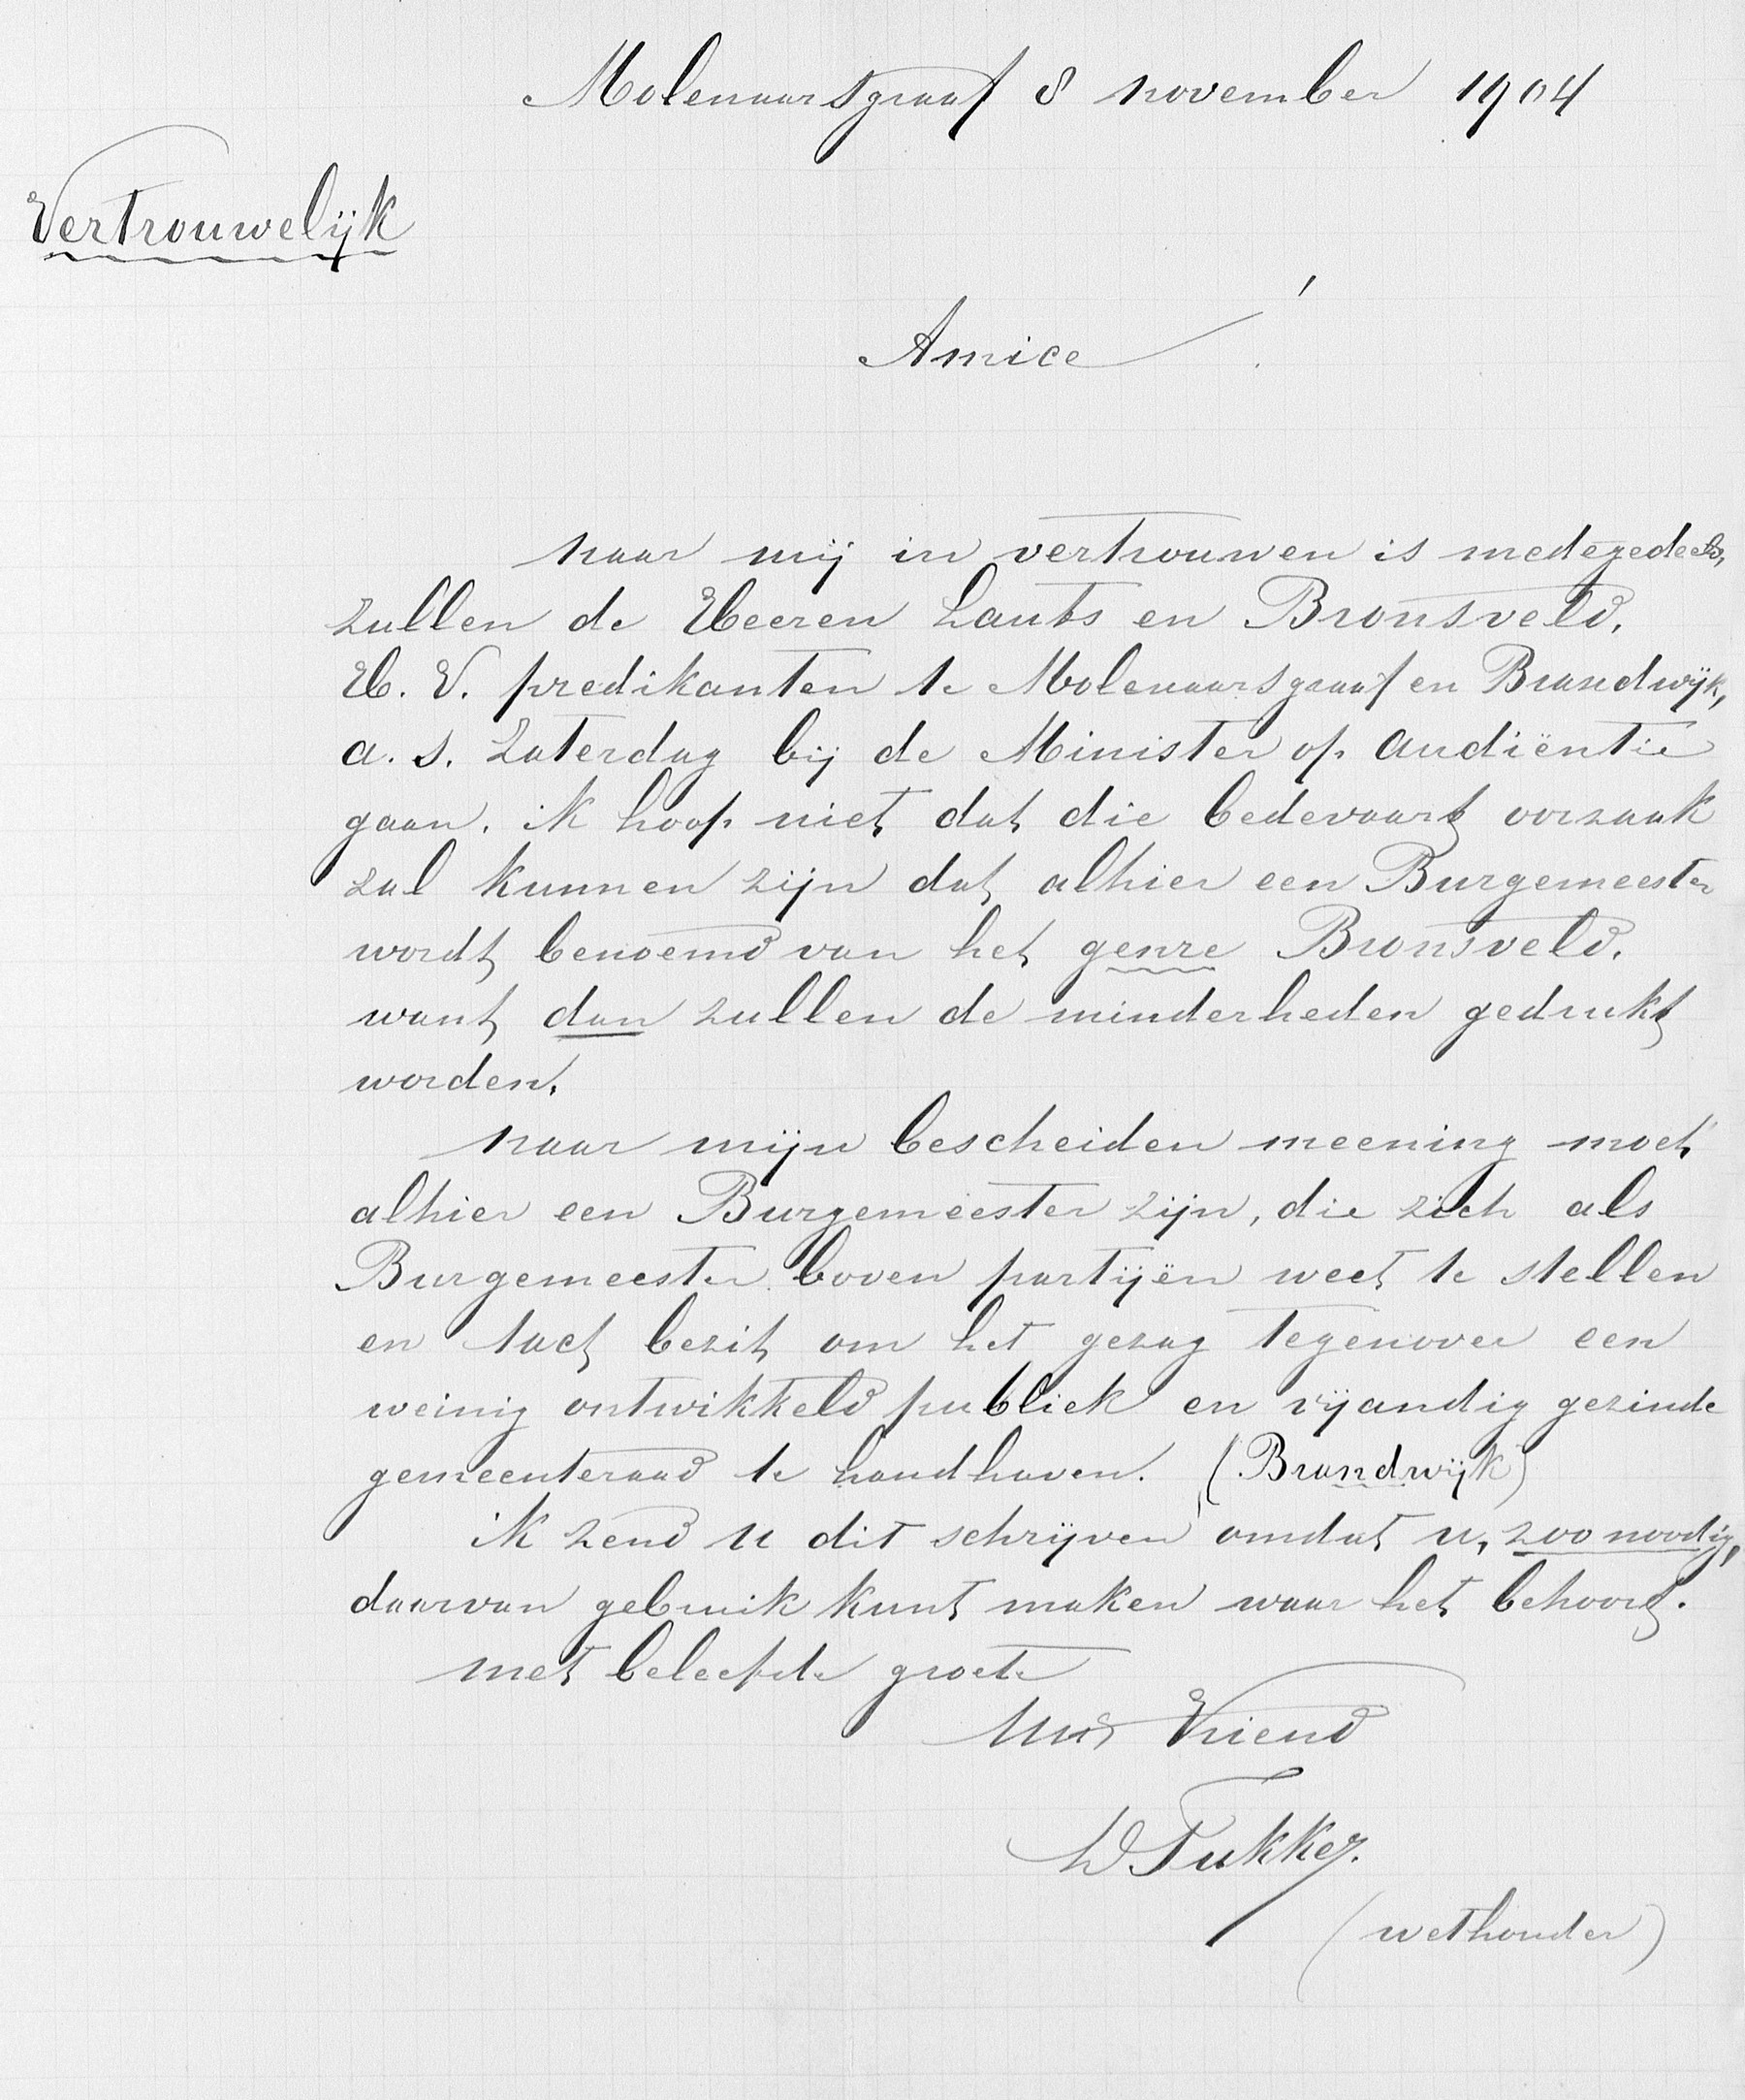 Molenaarsgraaf 8 november 1904
Vertrouwelijk
Amice!
naar mij in vertrouwen is medegedeeld,
zullen de Heeren Lauts en Bronsveld.
H. V. predikanten te Molenaarsgraaf en Brandwijk,
a. s. Zaterdag bij de Minister op audiëntie
gaan. ik hoop niet dat die bedevaart oorzaak
zal kunnen zijn dat alhier een Burgemeester
wordt benoemd van het genre Bronsveld.
want dan zullen de minderheden gedrukt
worden.
naar mijn bescheiden meening moet
alhier een Burgemeester zijn, die zich als
Burgemeester boven partijën weet te stellen
en tact bezit om het gezag tegenover een
weinig ontwikkeld publiek en vijandig gezinde
gemeenteraad te handhaven. (Brandwijk)
ik zend u dit schrijven omdat u, zoo noodig,
daarvan gebruik kunt maken waar het behoort.
met beleefde groete
Uw Vriend
D Tukker.
(wethouder)